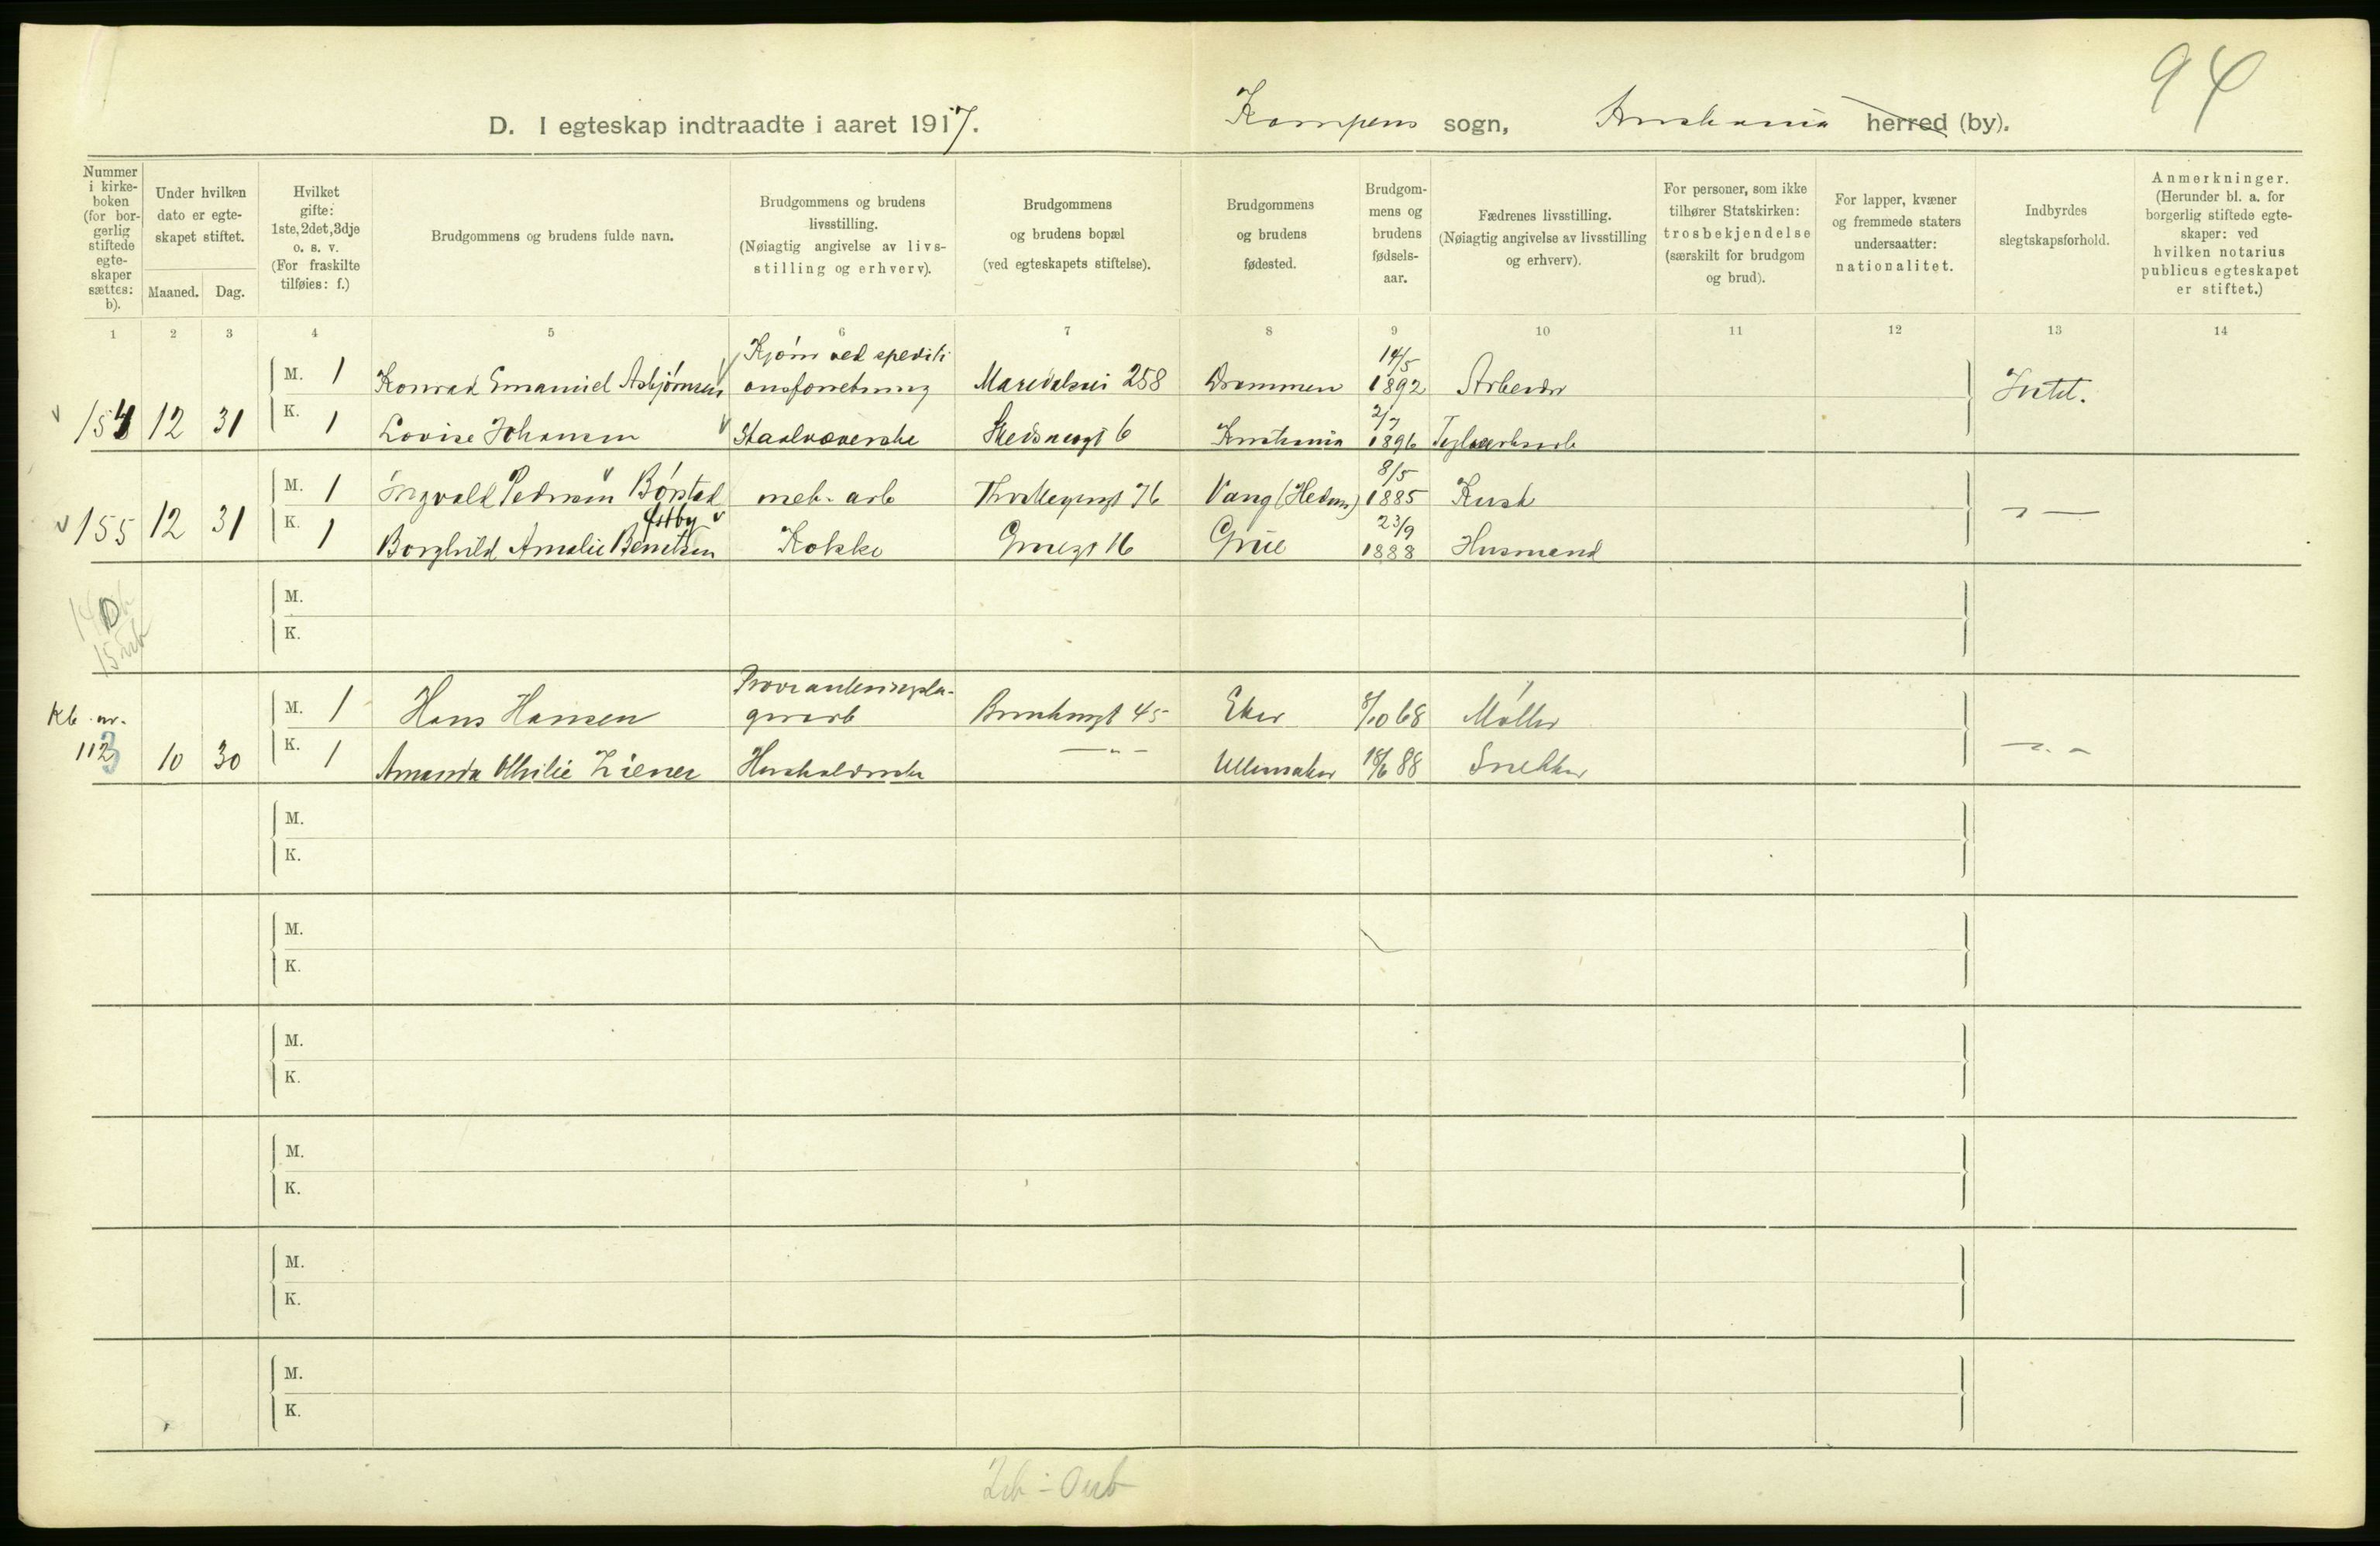 94
D. I egteskap indtraadte i aaret 1917. Kampens sogn, Kristiania herred (by).
Nummer i kirke-boken (for bor-gerlig stiftede egte-skaper sættes: b).
Under hvilken dato er egte-skapet stiftet.
Maaned. Dag.
Hvilket gifte: 1ste, 2det, 3dje o. s. v. (For fraskilte tilføies: f.)
Brudgommens og brudens fulde navn.
Brudgommens og brudens livsstilling. (Nøiagtig angivelse av livs-stilling og erhverv).
Brudgommens og brudens bopæl (ved egteskapets stiftelse).
Brudgommens og brudens fødested.
Brudgom-mens og brudens fødsels-aar.
Fædrenes livsstilling. (Nøiagtig angivelse av livsstilling og erhverv).
For personer, som ikke tilhører Statskirken: trosbekjendelse (særskilt for brudgom og brud).
For lapper, kvæner og fremmede staters undersaatter: nationalitet.
Indbyrdes slegtskapsforhold.
Anmerkninger. (Herunder bl. a. for borgerlig stiftede egte-skaper: ved hvilken notarius publicus egteskapet er stiftet.)
1 2 3 4 5 6 7 8 9 10 11 12 13 14
Kjører ved spediti 14/5
M. 1 Konrad Emanuel Asbjørnsen onsforretning Maridalsvei 258 Drammen 1892 Arbeider Intet.
2/7
154 12 31 K. 1 Lovise Johansen Staalvæverske Hedsmogt 6 Kristiania 1896 Teglverksarb
8/5
M. 1 Ingvald Pedersen Børstad mek. arb 76 Vang (Hedm) 1885 Kusk
Østby 23/9
155 12 31 K. 1 Borghild Amalie Berntsen Kokke Gruegt 16 Grue 1888 Husmand
M.
K.
Kb. nr. M. 1 Hans Hansen gerarb 45 Eker 8/10 68 Møller
112 3 10 30 K. 1 Amanda Othilie Ziener Husholderske — " — Ullensaker 18/6 88 Snekker
M.
K.
M.
K.
M.
K.
M.
K.
M.
K.
M.
K.